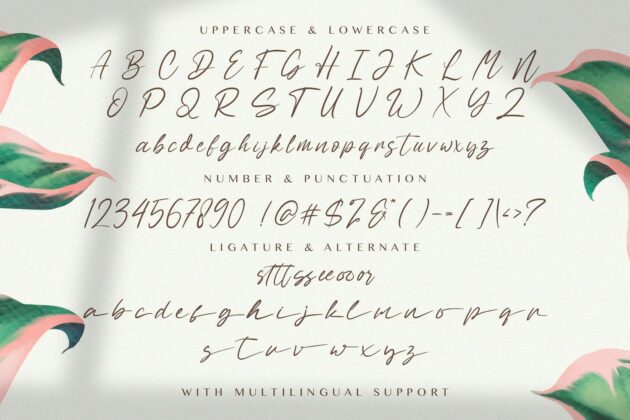 UPPERCASE & LOWERCASE
A B C D E F G H I J K L M N
O P Q R S T U V W X Y Z
abcdefghijklmnopqrstuvwxyz
NUMBER & PUNCTUATION
1234567890 !@#$%&*()-=[]\<>?
LIGATURE & ALTERNATE
stttsseeooor
a b c d e f g h i j k l m n o p q r
s t u v w x y z
WITH MULTILINGUAL SUPPORT